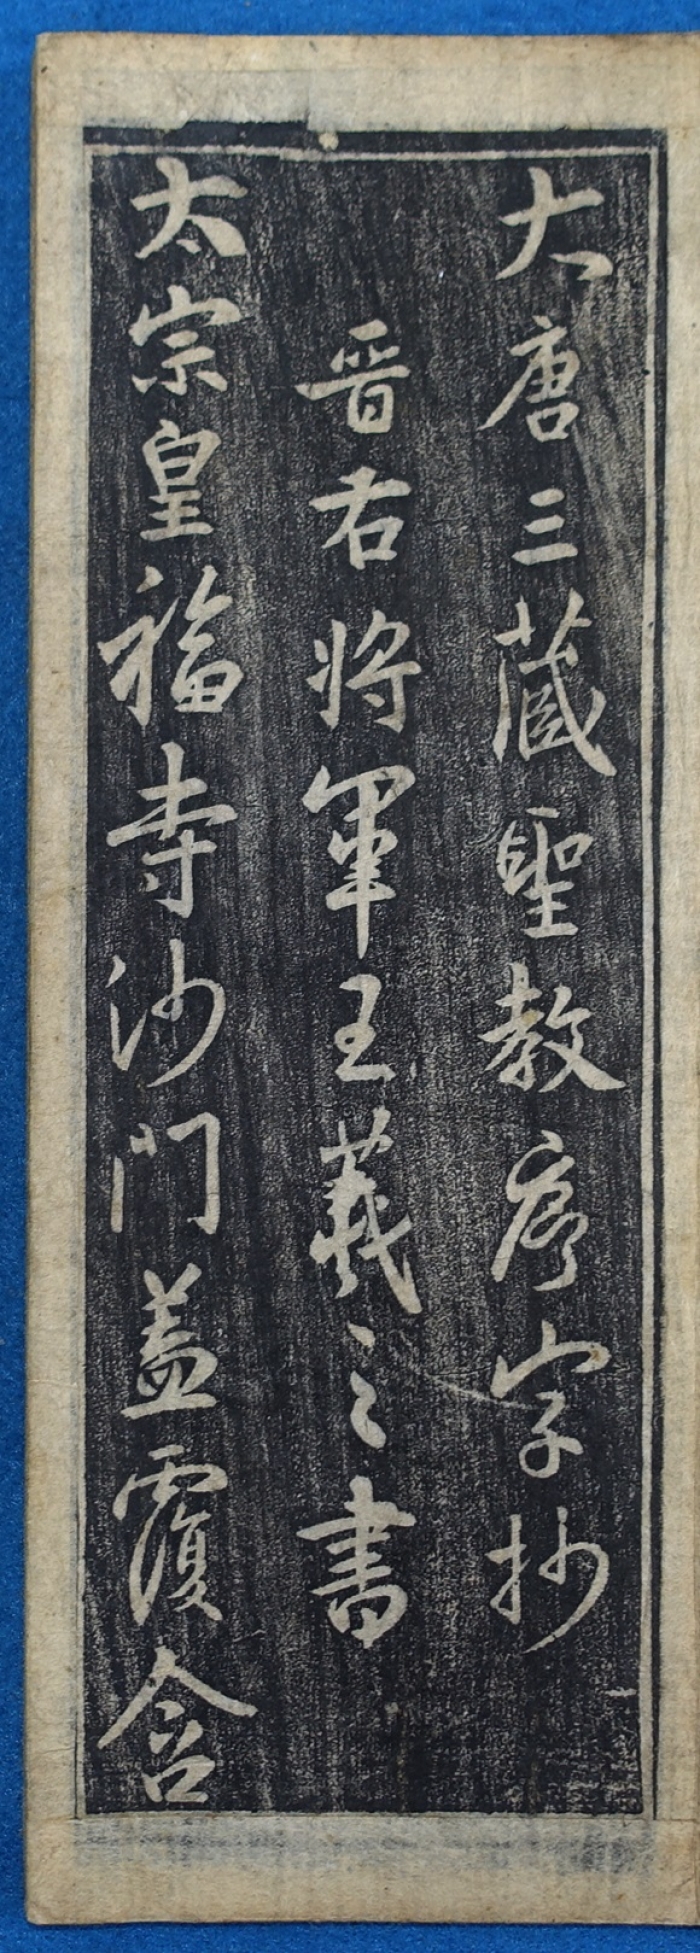 大唐三藏聖教序字抄
晋右將軍王羲之書
太宗皇福寺沙門盖覆含